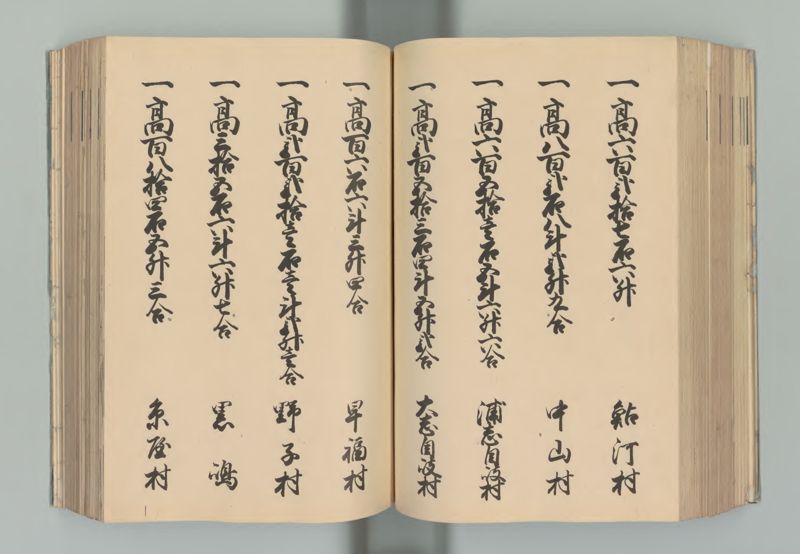 一高六百弐拾七石六升 鮎河村
一高八百弐石八斗弐升九合 中山村
一高六百五拾壱石五斗六升六合 浦志自岐村
一高弐百五拾三石四斗五升弐合 大志自岐村
一高百六石六斗三升四合 早福村
一高弐百弐拾壱石壱斗弐升壱合 野子村
一高三拾五石六斗六升七合 黒嶋
一高百八拾四石五升三合 糸屋村